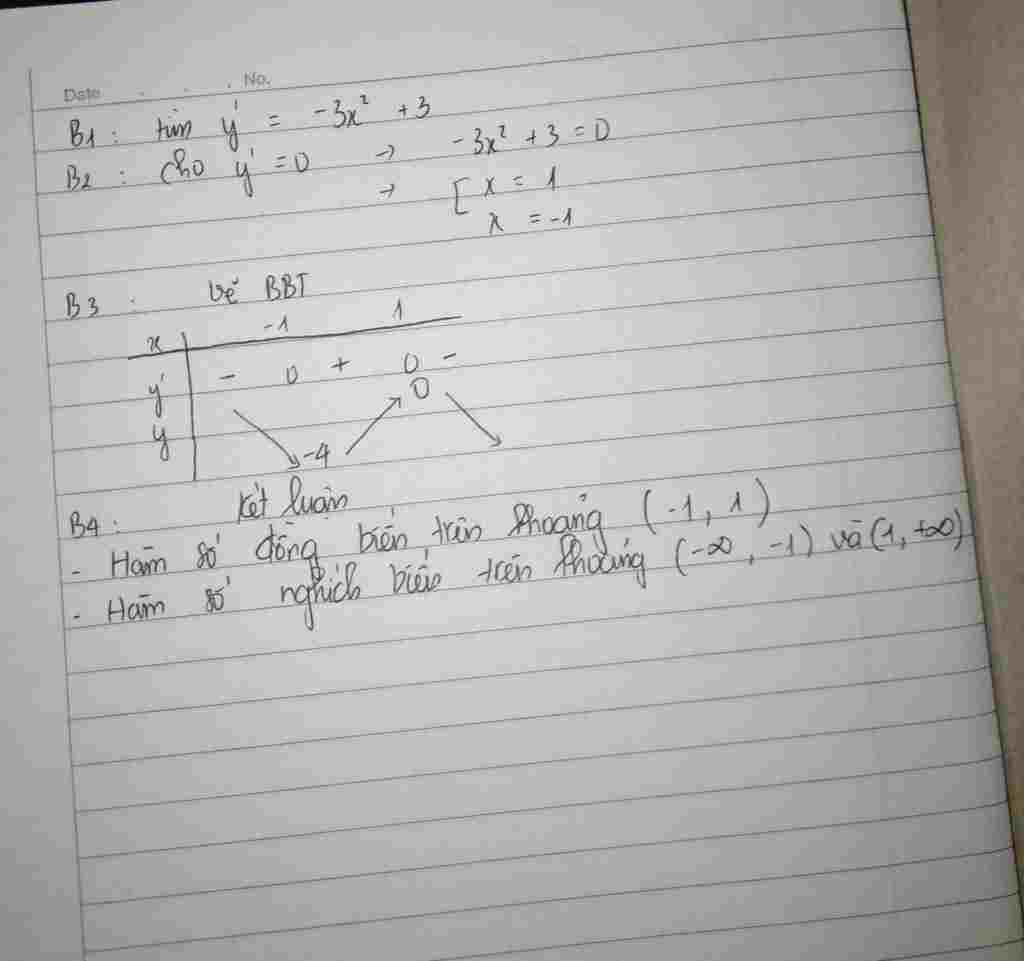 Date . . . No.
B1 : tìm y' = -3x² +3
B2 : Cho y' = 0 → -3x² + 3 = 0
→ [ x = 1
x = -1
B3 : Vẽ BBT
x -1 1
y' - 0 + 0 -
0
y
-4
B4 : Kết luận
- Hàm số đồng biến trên khoảng (-1, 1)
- Hàm số nghịch biến trên khoảng (-∞, -1) và (1, +∞)